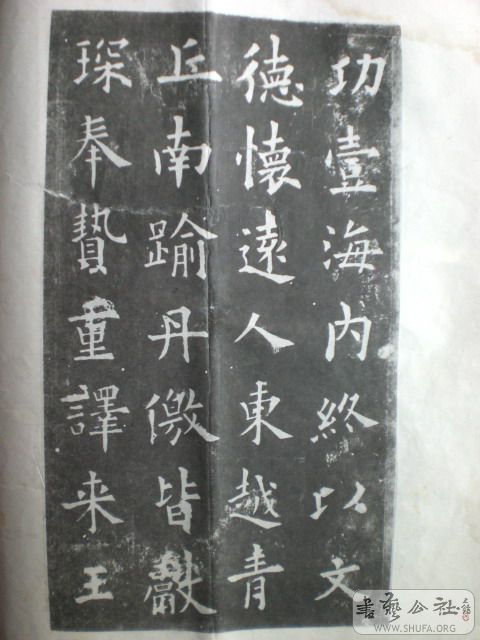 功壹海内終以文
德懷遠人東越青
丘南踰丹儌皆獻
琛奉贄重譯来王
書藝公社
WWW.SHUFA.ORG